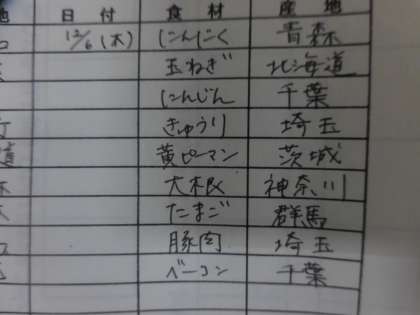 日付 食材 産地
12/6(木) にんにく 青森
玉ねぎ 北海道
にんじん 千葉
きゅうり 埼玉
黄ピーマン 茨城
大根 神奈川
たまご 群馬
豚肉 埼玉
ベーコン 千葉